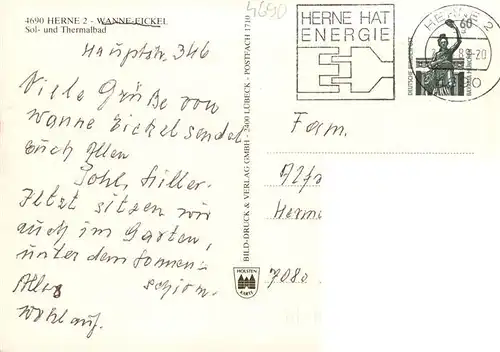 4690 HERNE 2 - WANNE-EICKEL
Sol- und Thermalbad
Hauptstr. 346
Viele Grüße von
Wanne Eickel sendet
Euch Allen
Hiller.
Jetzt sitzen wir
auch im Garten,
unter dem Sonnen=
schirm.
Alles
wohlauf.
BILD-DRUCK & VERLAG GMBH - 2400 LÜBECK - POSTFACH 1710
HOLSTEN
KARTE
4690
HERNE HAT
ENERGIE
HERNE 2
60
DEUTSCHE BUNDESPOST
BAVARIA MÜNCHEN
Fam.
7080